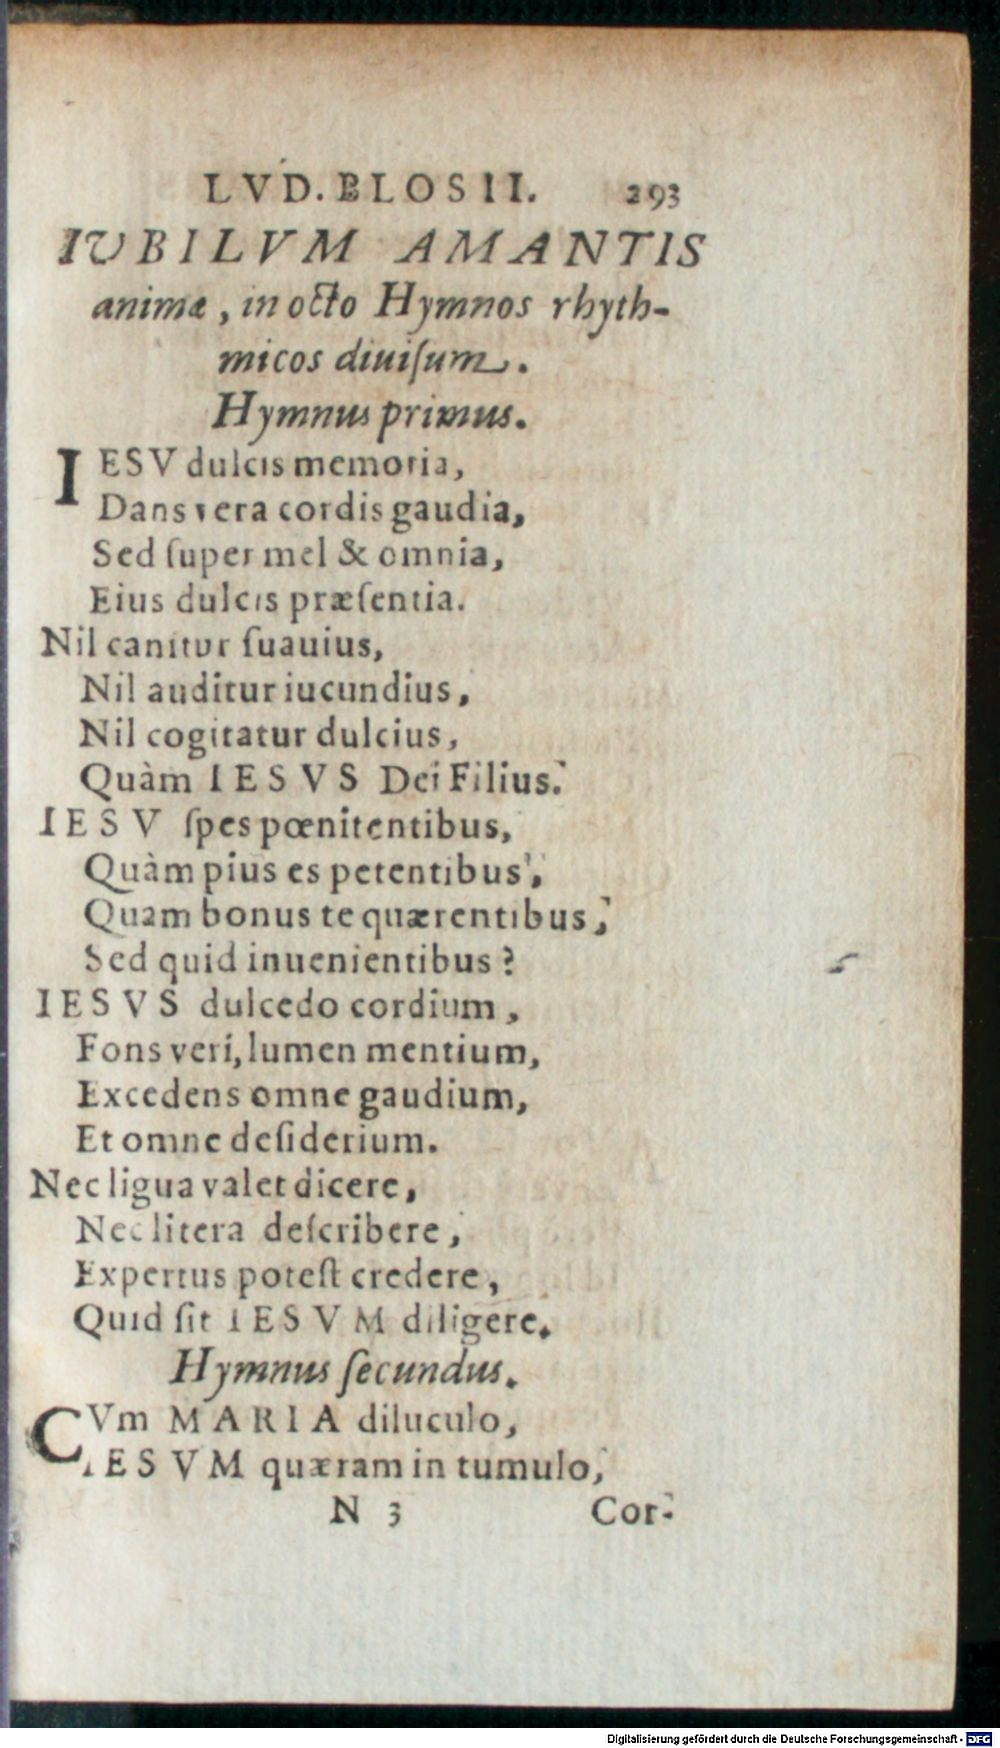 LVD. BLOSII. 293
IUBILVM AMANTIS
animæ, in octo Hymnos rhyth-
micos diuiſum.
Hymnus primus.
IESV dulcis memoria,
Dans vera cordis gaudia,
Sed ſuper mel & omnia,
Eius dulcis præſentia.
Nil canitur ſuauius,
Nil auditur iucundius,
Nil cogitatur dulcius,
Quàm IESVS Dei Filius.
IESV ſpes pœnitentibus,
Quàm pius es petentibus,
Quam bonus te quærentibus,
Sed quid inuenientibus?
IESVS dulcedo cordium,
Fons veri, lumen mentium,
Excedens omne gaudium,
Et omne deſiderium.
Nec ligua valet dicere,
Nec litera deſcribere,
Expertus poteſt credere,
Quid ſit IESVM diligere.
Hymnus ſecundus.
CVm MARIA diluculo,
IESVM quæram in tumulo,
N 3 Cor-
Digitalisierung gefördert durch die Deutsche Forschungsgemeinschaft - DFG